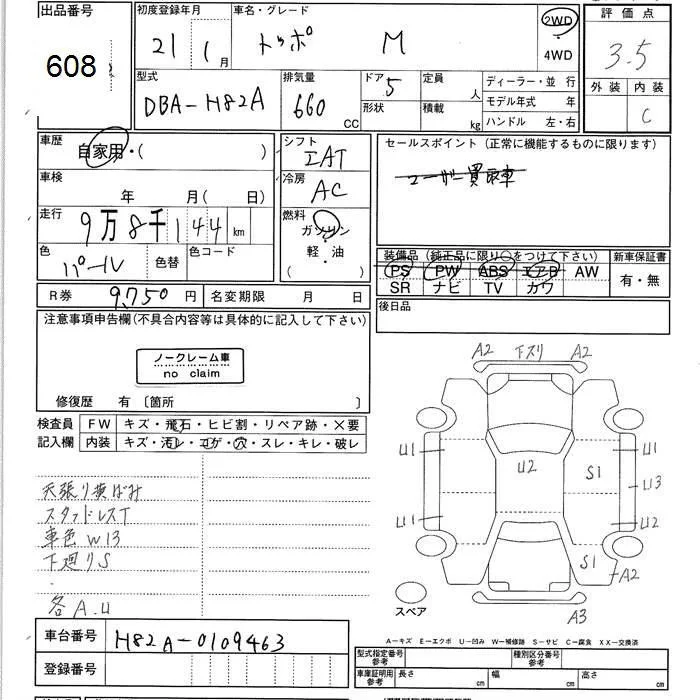 出品番号
608
初度登録年月
21年1月
車名・グレード
トッポ M
2WD
・
4WD
評価点
3.5
外装 内装
C
型式
DBA-H82A
排気量
660 CC
ドア 5
形状
定員 人
積載 kg
ディーラー・並行
モデル年式 年
ハンドル 左・右
車歴
自家用・( )
車検
年 月( 日)
走行
9万8千144km
色
パール
色替
色コード
シフト
IAT
冷房
AC
燃料
ガソリン
軽・油
セールスポイント(正常に機能するものに限ります)
ユーザー買取車
装備品(純正品に限り○をつけて下さい)
PS PW ABS エアB AW
SR ナビ TV カワ
新車保証書
有・無
後日品
R券 9,750円
名変期限 月 日
注意事項申告欄(不具合内容等は具体的に記入して下さい)
ノークレーム車
no claim
修復歴 有 〔箇所 〕
検査員
記入欄
FW キズ・飛石・ヒビ割・リペア跡・×要
内装 キズ・汚レ・コゲ・穴・スレ・キレ・破レ
天張り黄ばみ
スタッドレスT
車色W13
下廻りS
各A.U
A2 下スリ A2
U1 U2 S1 U1
U13
U1 U2
S1 A2
A3
スペア
A-キズ E-エクボ U-凹み W-補修跡 S-サビ C-腐食 XX-交換済
車台番号 H82A-0109463
登録番号
型式指定番号
参考
種別区分番号
参考
車庫証明用
参考
長さ cm
幅 cm
高さ cm